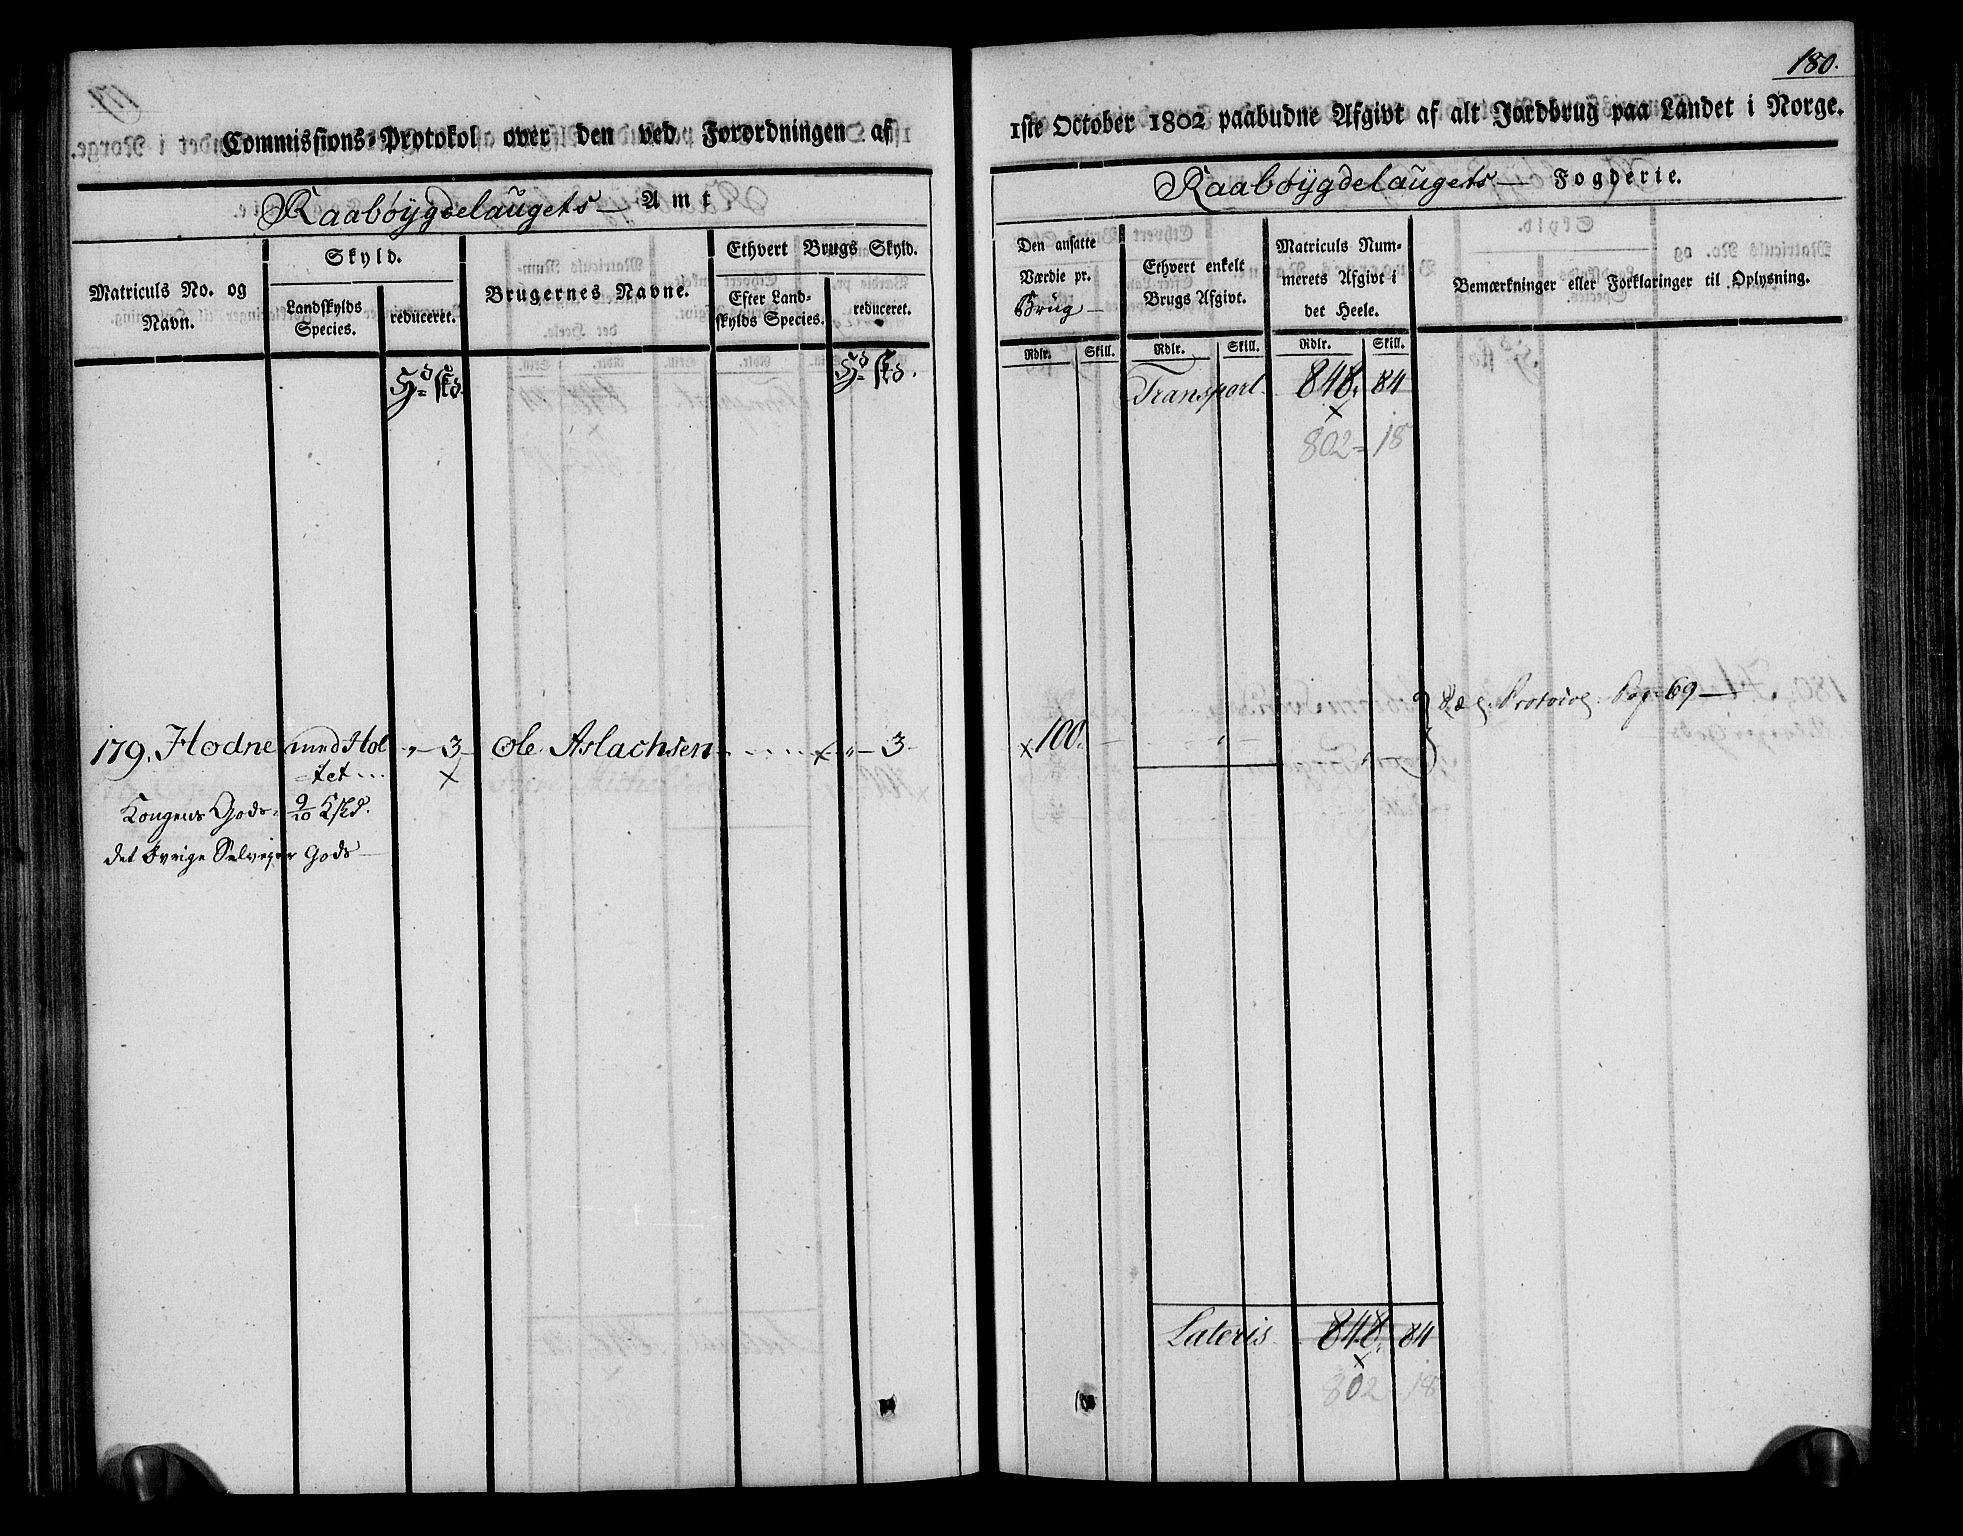 180.
Commissions-Protokol over den ved Forordningen af
1ste October 1802 paabudne Afgivt af alt Jordbrug paa Landet i Norge.
Raabøygdelaugets Amt
Raabøygdelaugets Fogderie.
Matriculs No. og Navn.
Skyld.
Landskylds Species.
reduceret.
Brugernes Navne.
Ethvert Brugs Skyld.
Efter Landskylds Species.
reduceret.
Den ansatte Værdie pr. Brug
Ethvert enkelt Brugs Afgivt.
Matriculs Nummerets Afgivt i det Heele.
Bemærkninger eller Forklaringer til Oplysning.
Rdlr. Skill. Rdlr. Skill. Rdlr. Skill.
Hd skd. Hd skd.
Transport. 848. 84
802 = 18
Protocol Pag: 69
179. Hodne med Hol „ 3 Ole Aslachsen „ 3 100. „
=tet
Kongens Gods 9/20
det øvrige Selvejer Gods
Lateris 848. 84
802 18